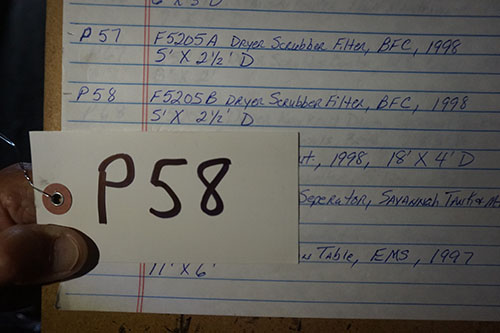 6' X 5' D
P57 F5205A Dryer Scrubber Filter, BFC, 1998
5' X 2½' D
P58 F5205B Dryer Scrubber Filter, BFC, 1998
5' X 2½' D
1998, 18' X 4' D
Seperator, Savannah Tank &
P58
Table, EMS, 1997
11' X 6'